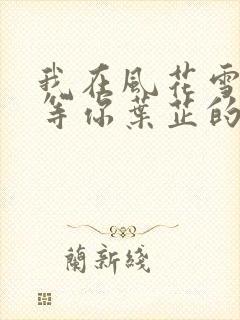 我在風花雪
等你葉芷的
蘭新綫